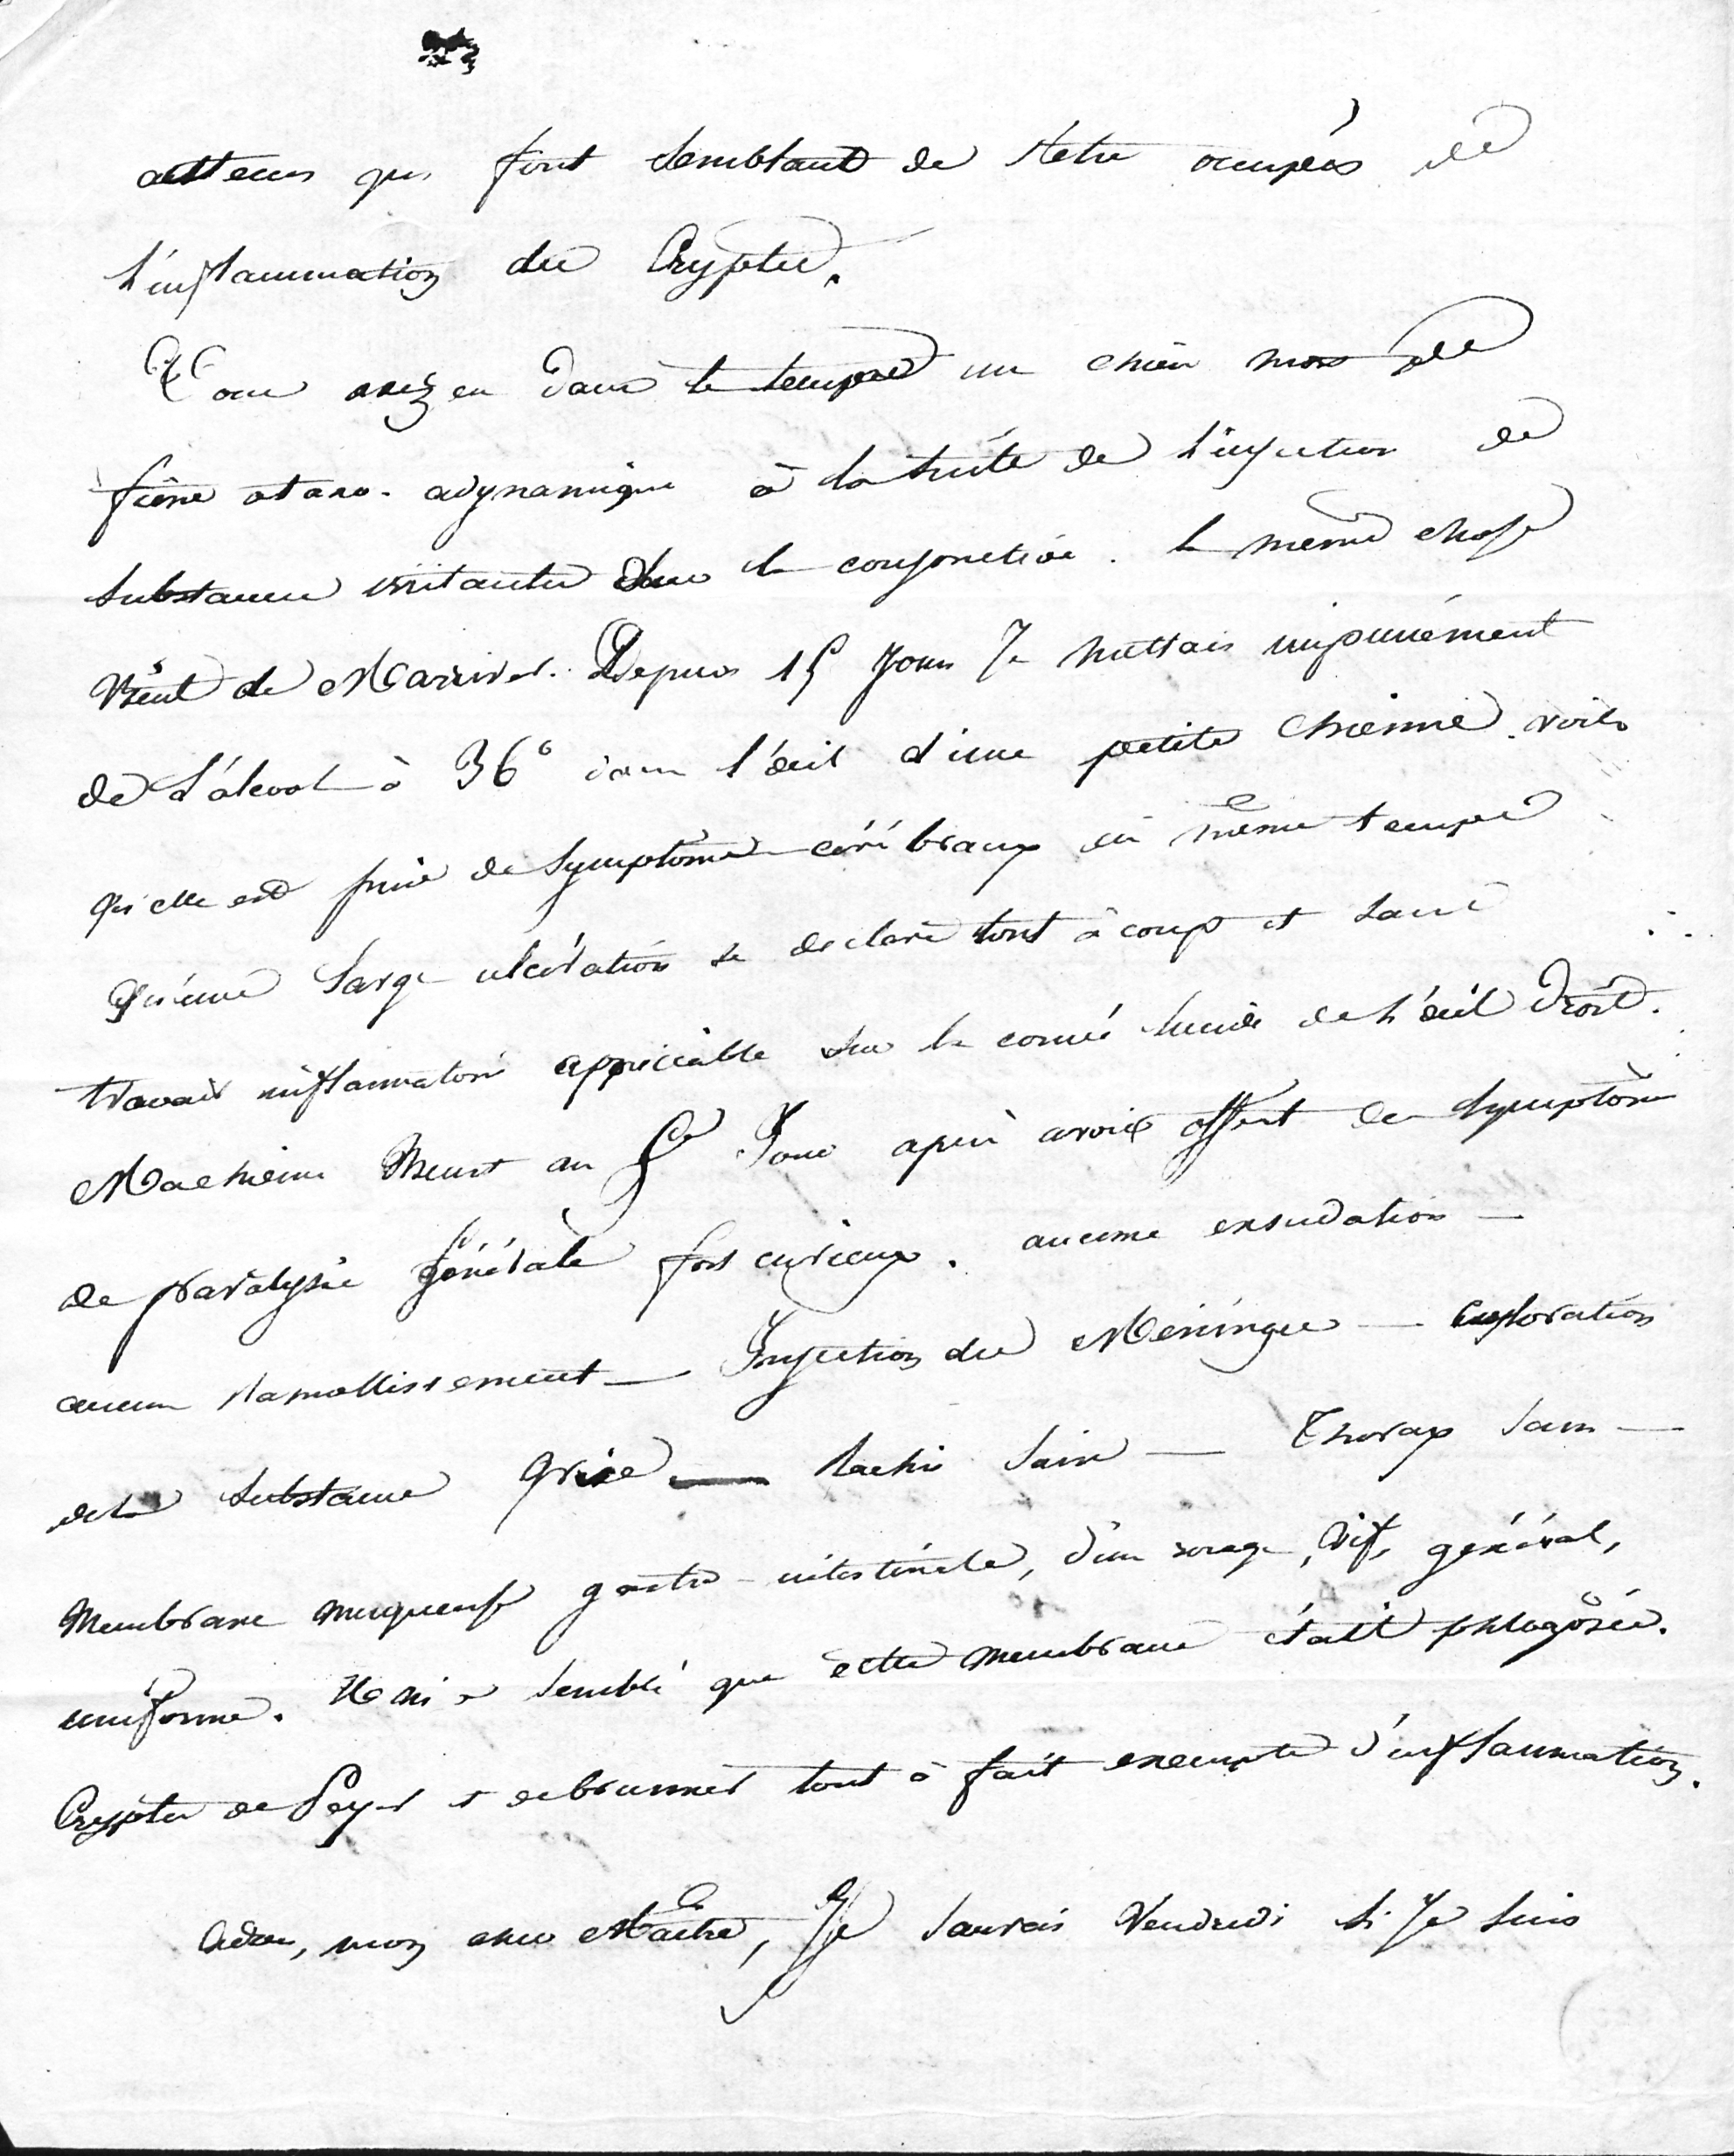 auteurs qui font semblant de s'être occupés de
l'inflammation des Cryptes.
Vous avez eu dans le temps un chien mort de
fièvre ataxo-adynamique à la suite de l'injection de
substances irritantes sur la conjonctive. la même chose
vient de M'arriver. Depuis 15 Jours Je mettais impunément
de l'alcool à 36° dans l'œil d'une petite chienne. voilà
qu'elle est prise de symptômes cérébraux en même temps
qu'une large ulcération se déclare tout à coup et sans
travail inflammatoire appréciable sur la cornée lucide de l'œil droit.
Ma chienne Meurt au 5e Jour après avoir offert des symptômes
de paralysie générale fort curieux. aucune exsudation —
aucun ramollissement — Injection des Méninges — coloration
de la substance grise — Rachis sain — Thorax sain —
Membrane muqueuse gastro-intestinale, d'un rouge, vif, général,
uniforme. Il m'a semblé que cette membrane était phlogosée.
Cryptes de Peyer et de brunner tout à fait exemptes d'inflammation.
Adieu, mon cher Maître, Je saurai Vendredi si Je suis